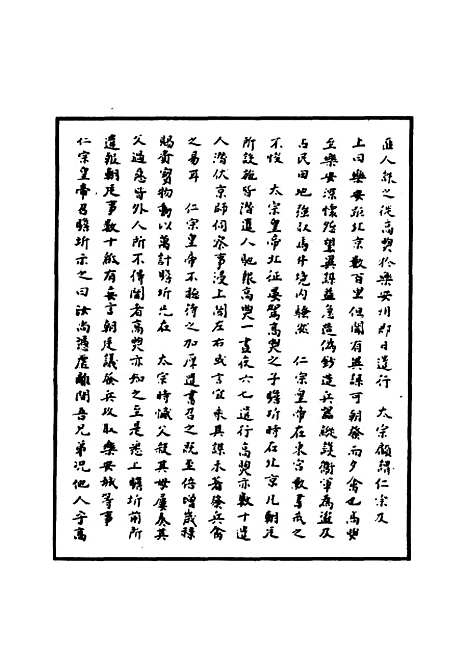 亟人報之從高煦於樂安州即日遣行　太宗顧謂仁宗及
上曰樂安距北京數百里但聞有異謀可朝發而夕禽也高煦
至樂安深懷怨望異謀益急造偽鈔造兵器縱護衛軍為盜及
占民田地強取馬牛境內騷然　仁宗皇帝在東宮數書戒之
不悛　太宗皇帝北征晏駕高煦之子瞻圻時在北京凡朝廷
所設施皆潛遣人馳報高煦一晝夜六七遣行高煦亦數十遣
人潛伏京師伺察事漫上聞左右或言宜乘其謀未著發兵禽
之易耳　仁宗皇帝不聽待之加厚遺書召之既至倍增歲祿
賜賚寶物動以萬計瞻圻先在　太宗時憾父殺其母屢奏其
父過惡皆外人所不得聞者高煦亦知之至是悉上瞻圻前所
遣報朝廷事數十紙有妄言朝廷議發兵攻取樂安城等事
仁宗皇帝召瞻圻示之曰汝尚憑虛離間吾兄弟況他人乎高